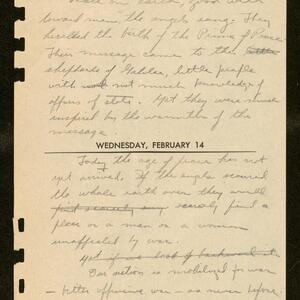 on earth, good will
toward men" the angels sang. They
heralded the birth of the Prince of Peace.
Their message came to the
shepherds of Galilee, little people
with not much knowledge of
affairs of state. Yet they were much
inspired by the warmth of the
message.
WEDNESDAY, FEBRUARY 14
Today the age of peace has not
yet arrived. If the angels scoured
the whole earth over they would
find scarcely any scarcely find a
place or a man or a woman
unaffected by war.
yet if we look
Our nation is mobilized for war
– better offensive war – as never before